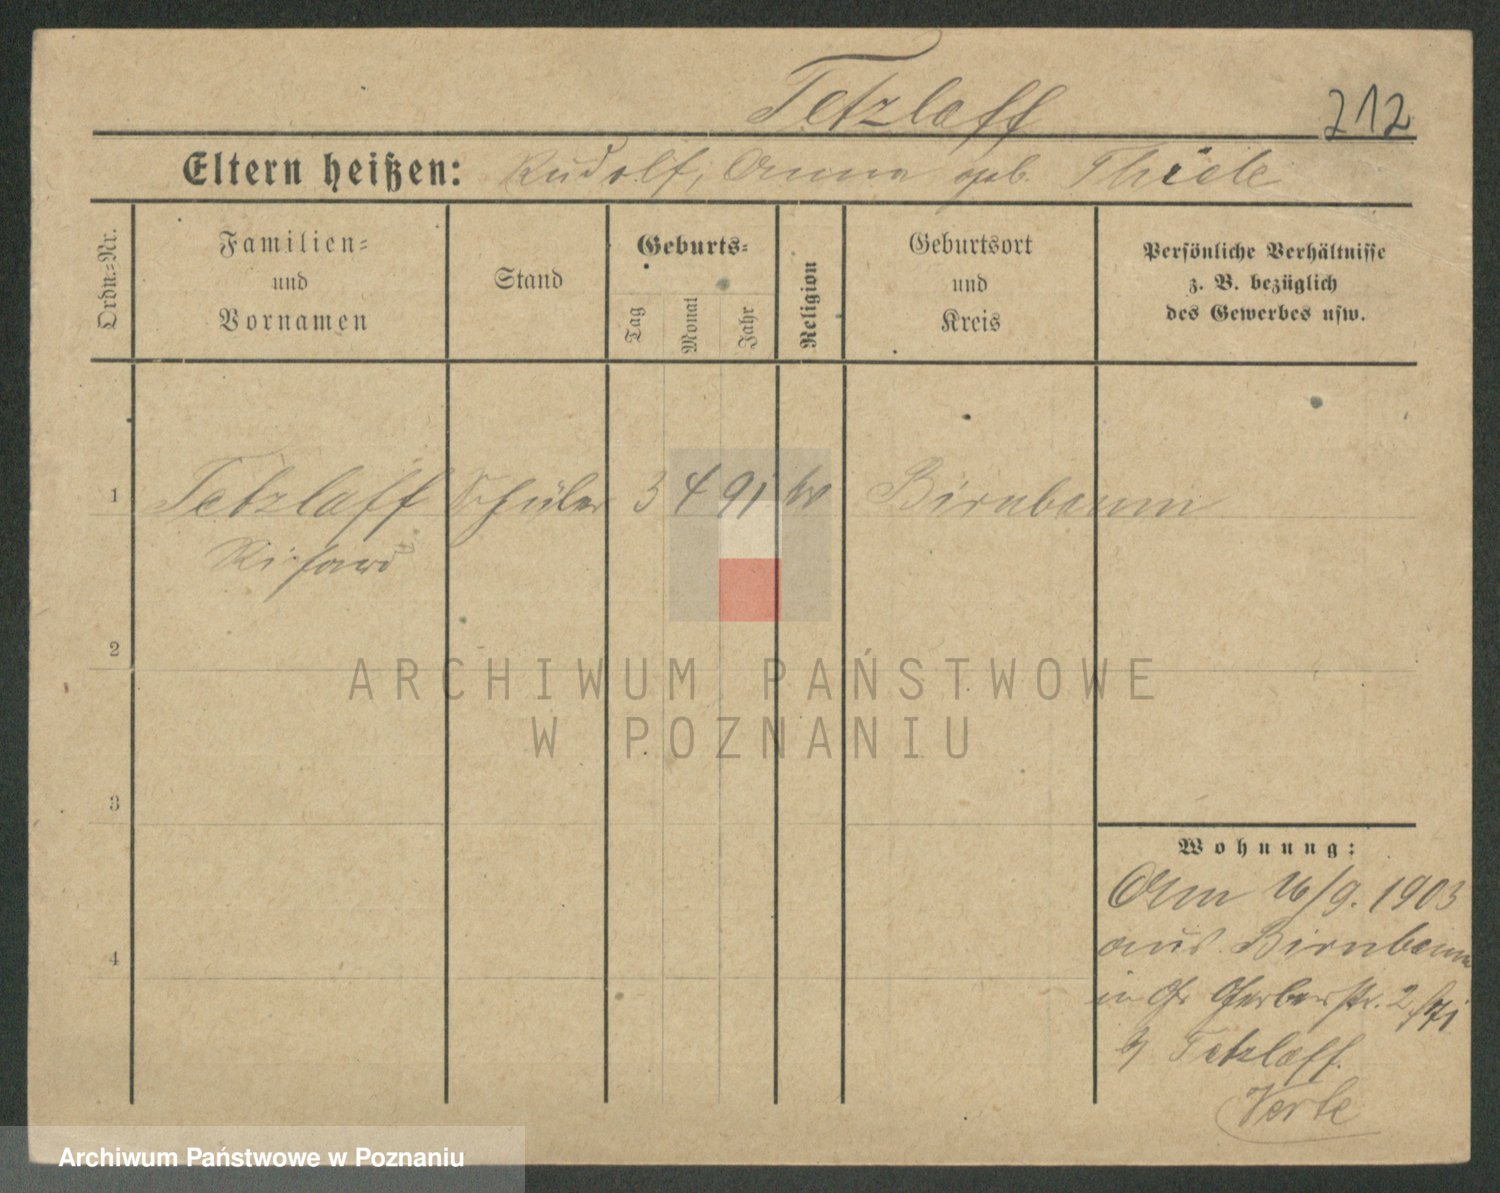 Tetzlaff 212
Eltern heißen: Rudolf, Anna geb. Thiele
Ordn.-Nr.
Familien-
und
Vornamen
Stand
Geburts-
Tag
Monat
Jahr
Religion
Geburtsort
und
Kreis
Persönliche Verhältnisse
z. B. bezüglich
des Gewerbes usw.
1 Tetzlaff Schüler 3 4 91 ev Birnbaum
Richard
2
ARCHIWUM PAŃSTWOWE
W POZNANIU
3
Wohnung:
Am 16/9. 1903
aus Birnbaum
in Gr Gerberstr. 2
b/ Tetzlaff.
4
Archiwum Państwowe w Poznaniu